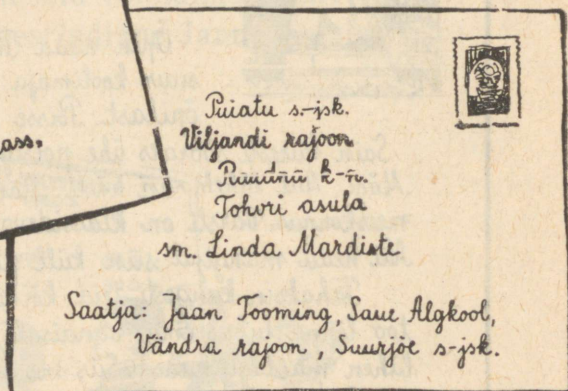 ass.
Puiatu s.-jsk.
Viljandi rajoon
k-n.
Tohvri asula
sm. Linda Mardiste.
Saatja: Jaan Tooming, Saue Algkool,
Vändra rajoon, Suurjõe s-jsk.